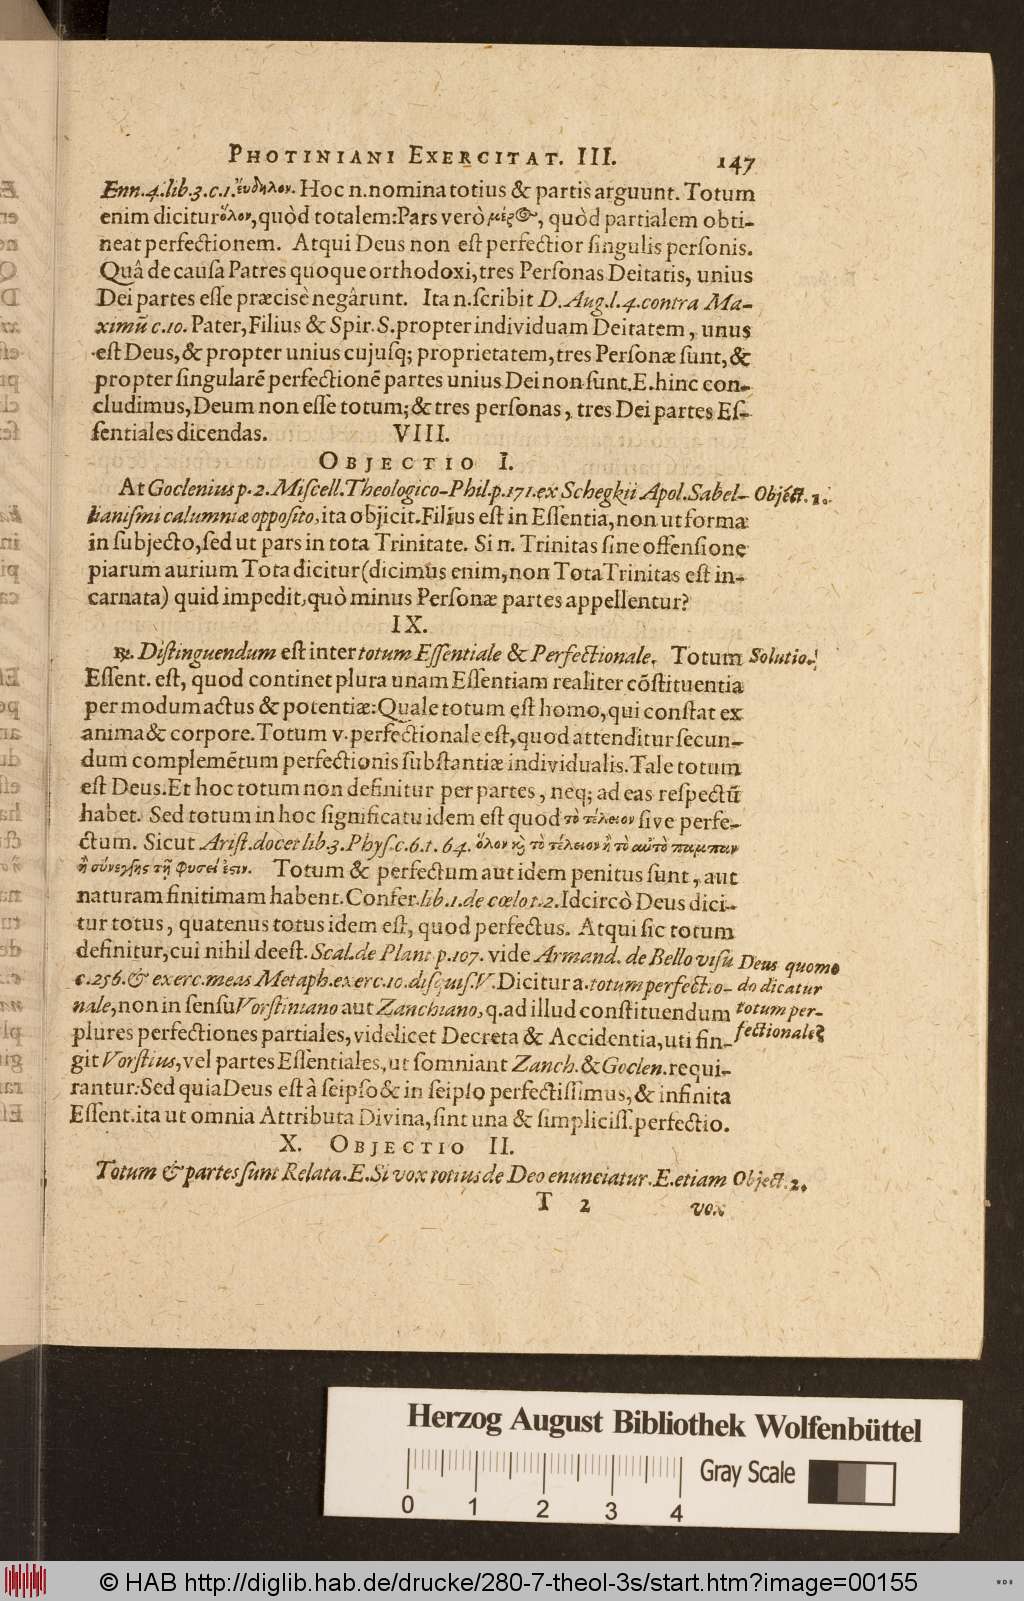 PHOTINIANI EXERCITAT. III. 147
Enn. 4. lib. 3. c. 1. ἔνδηλον. Hoc n. nomina totius & partis arguunt. Totum
enim dicitur ὅλον, quòd totalem: Pars verò μέρος, quòd partialem obti-
neat perfectionem. Atqui Deus non est perfectior singulis personis.
Quâ de causa Patres quoque orthodoxi, tres Personas Deitatis, unius
Dei partes esse præcisè negârunt. Ita n. scribit D. Aug. l. 4. contra Ma-
ximũ c. 10. Pater, Filius & Spir. S. propter individuam Deitatem, unus
est Deus, & propter unius cujusq; proprietatem, tres Personæ sunt, &
propter singularẽ perfectionẽ partes unius Dei non sunt. E. hinc con-
cludimus, Deum non esse totum; & tres personas, tres Dei partes Es-
sentiales dicendas. VIII.
OBJECTIO I.
At Goclenius p. 2. Miscell. Theologico-Phil. p. 171. ex Schegkii Apol. Sabel- Object. 1.
lianismi calumniæ opposito, ita objicit. Filius est in Essentia, non ut forma
in subjecto, sed ut pars in tota Trinitate. Si n. Trinitas sine offensione
piarum aurium Tota dicitur (dicimus enim, non Tota Trinitas est in-
carnata) quid impedit, quò minus Personæ partes appellentur?
IX.
℞. Distinguendum est inter totum Essentiale & Perfectionale. Totum Solutio.
Essent. est, quod continet plura unam Essentiam realiter cõstituentia
per modum actus & potentiæ: Quale totum est homo, qui constat ex
anima & corpore. Totum v. perfectionale est, quod attenditur secun-
dum complemẽtum perfectionis substantiæ individualis. Tale totum
est Deus. Et hoc totum non definitur per partes, neq; ad eas respectũ
habet. Sed totum in hoc significatu idem est quod τὸ τέλειον sive perfe-
ctum. Sicut Arist. docet lib. 3. Phys. c. 6. t. 64. ὅλον καὶ τὸ τέλειον ἢ τὸ αὐτὸ παμπαν
ἢ σύνεγγης τῇ φυσεί ἐστιν. Totum & perfectum aut idem penitus sunt, aut
naturam finitimam habent. Confer. lib. 1. de cœlo t. 2. Idcircò Deus dici-
tur totus, quatenus totus idem est, quod perfectus. Atqui sic totum
definitur, cui nihil deest. Scal. de Plant p. 107. vide Armand. de Bello visu Deus quomo
c. 256. & exerc. meas Metaph. exerc. 10. disquis. V. Dicitur a. totum perfectio- do dicatur
nale, non in sensu Vorstiniano aut Zanchiano, q. ad illud constituendum totum per-
plures perfectiones partiales, videlicet Decreta & Accidentia, uti fin- fectionale?
git Vorstius, vel partes Essentiales, ut somniant Zanch. & Goclen. requi-
rantur: Sed quia Deus est à seipso & in seipso perfectissimus, & infinita
Essent. ita ut omnia Attributa Divina, sint una & simpliciss. perfectio.
X. OBJECTIO II.
Totum & partes sunt Relata. E. Si vox totius de Deo enunciatur. E. etiam Object. 2.
T 2 vox
Herzog August Bibliothek Wolfenbüttel
Gray Scale
0 1 2 3 4
© HAB http://diglib.hab.de/drucke/280-7-theol-3s/start.htm?image=00155